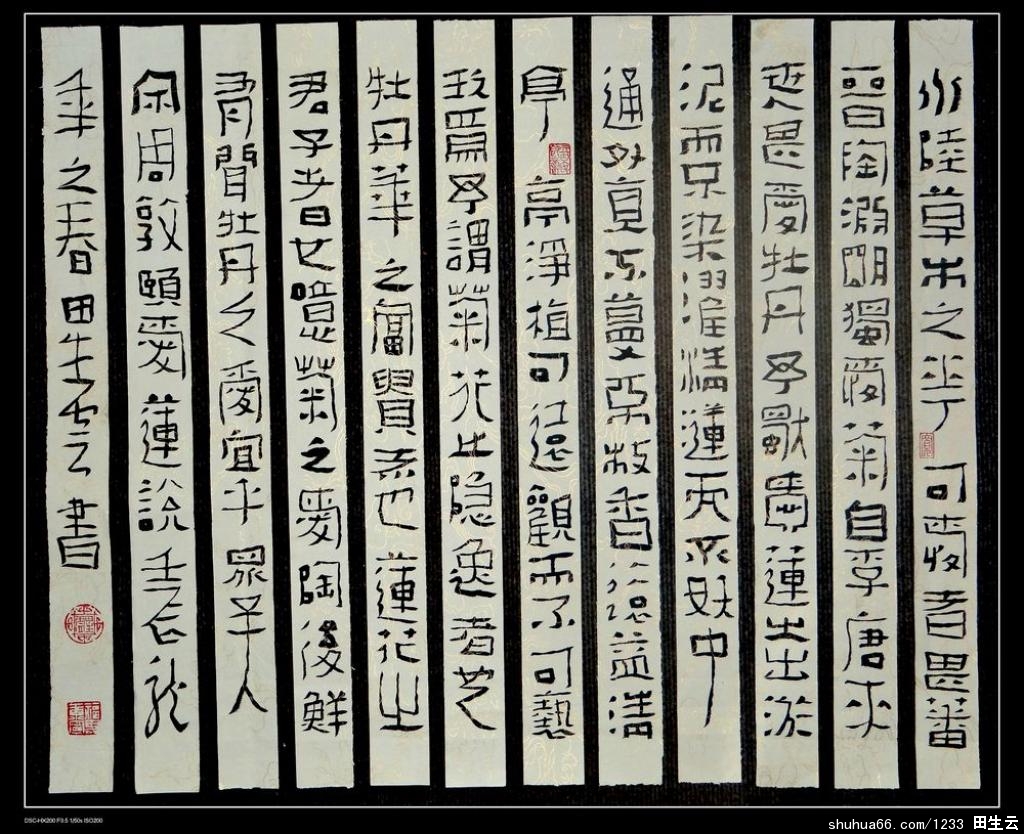 水陸草木之華可愛者甚蕃
晉陶淵明獨愛菊自李唐來
世人甚愛牡丹予獨愛蓮之出淤
泥而不染濯清漣而不妖中
通外直不蔓不枝香遠益清
亭亭淨植可遠觀而不可褻
玩焉予謂菊花之隱逸者也
牡丹華之富貴者也蓮花之
君子者也噫菊之愛陶後鮮
有聞牡丹之愛宜乎眾矣
宋周敦頤愛蓮說壬辰龍
年之春田生云書
DSC-HX200 F3.5 1/50s ISO200
shuhua66.com/1233 田生云